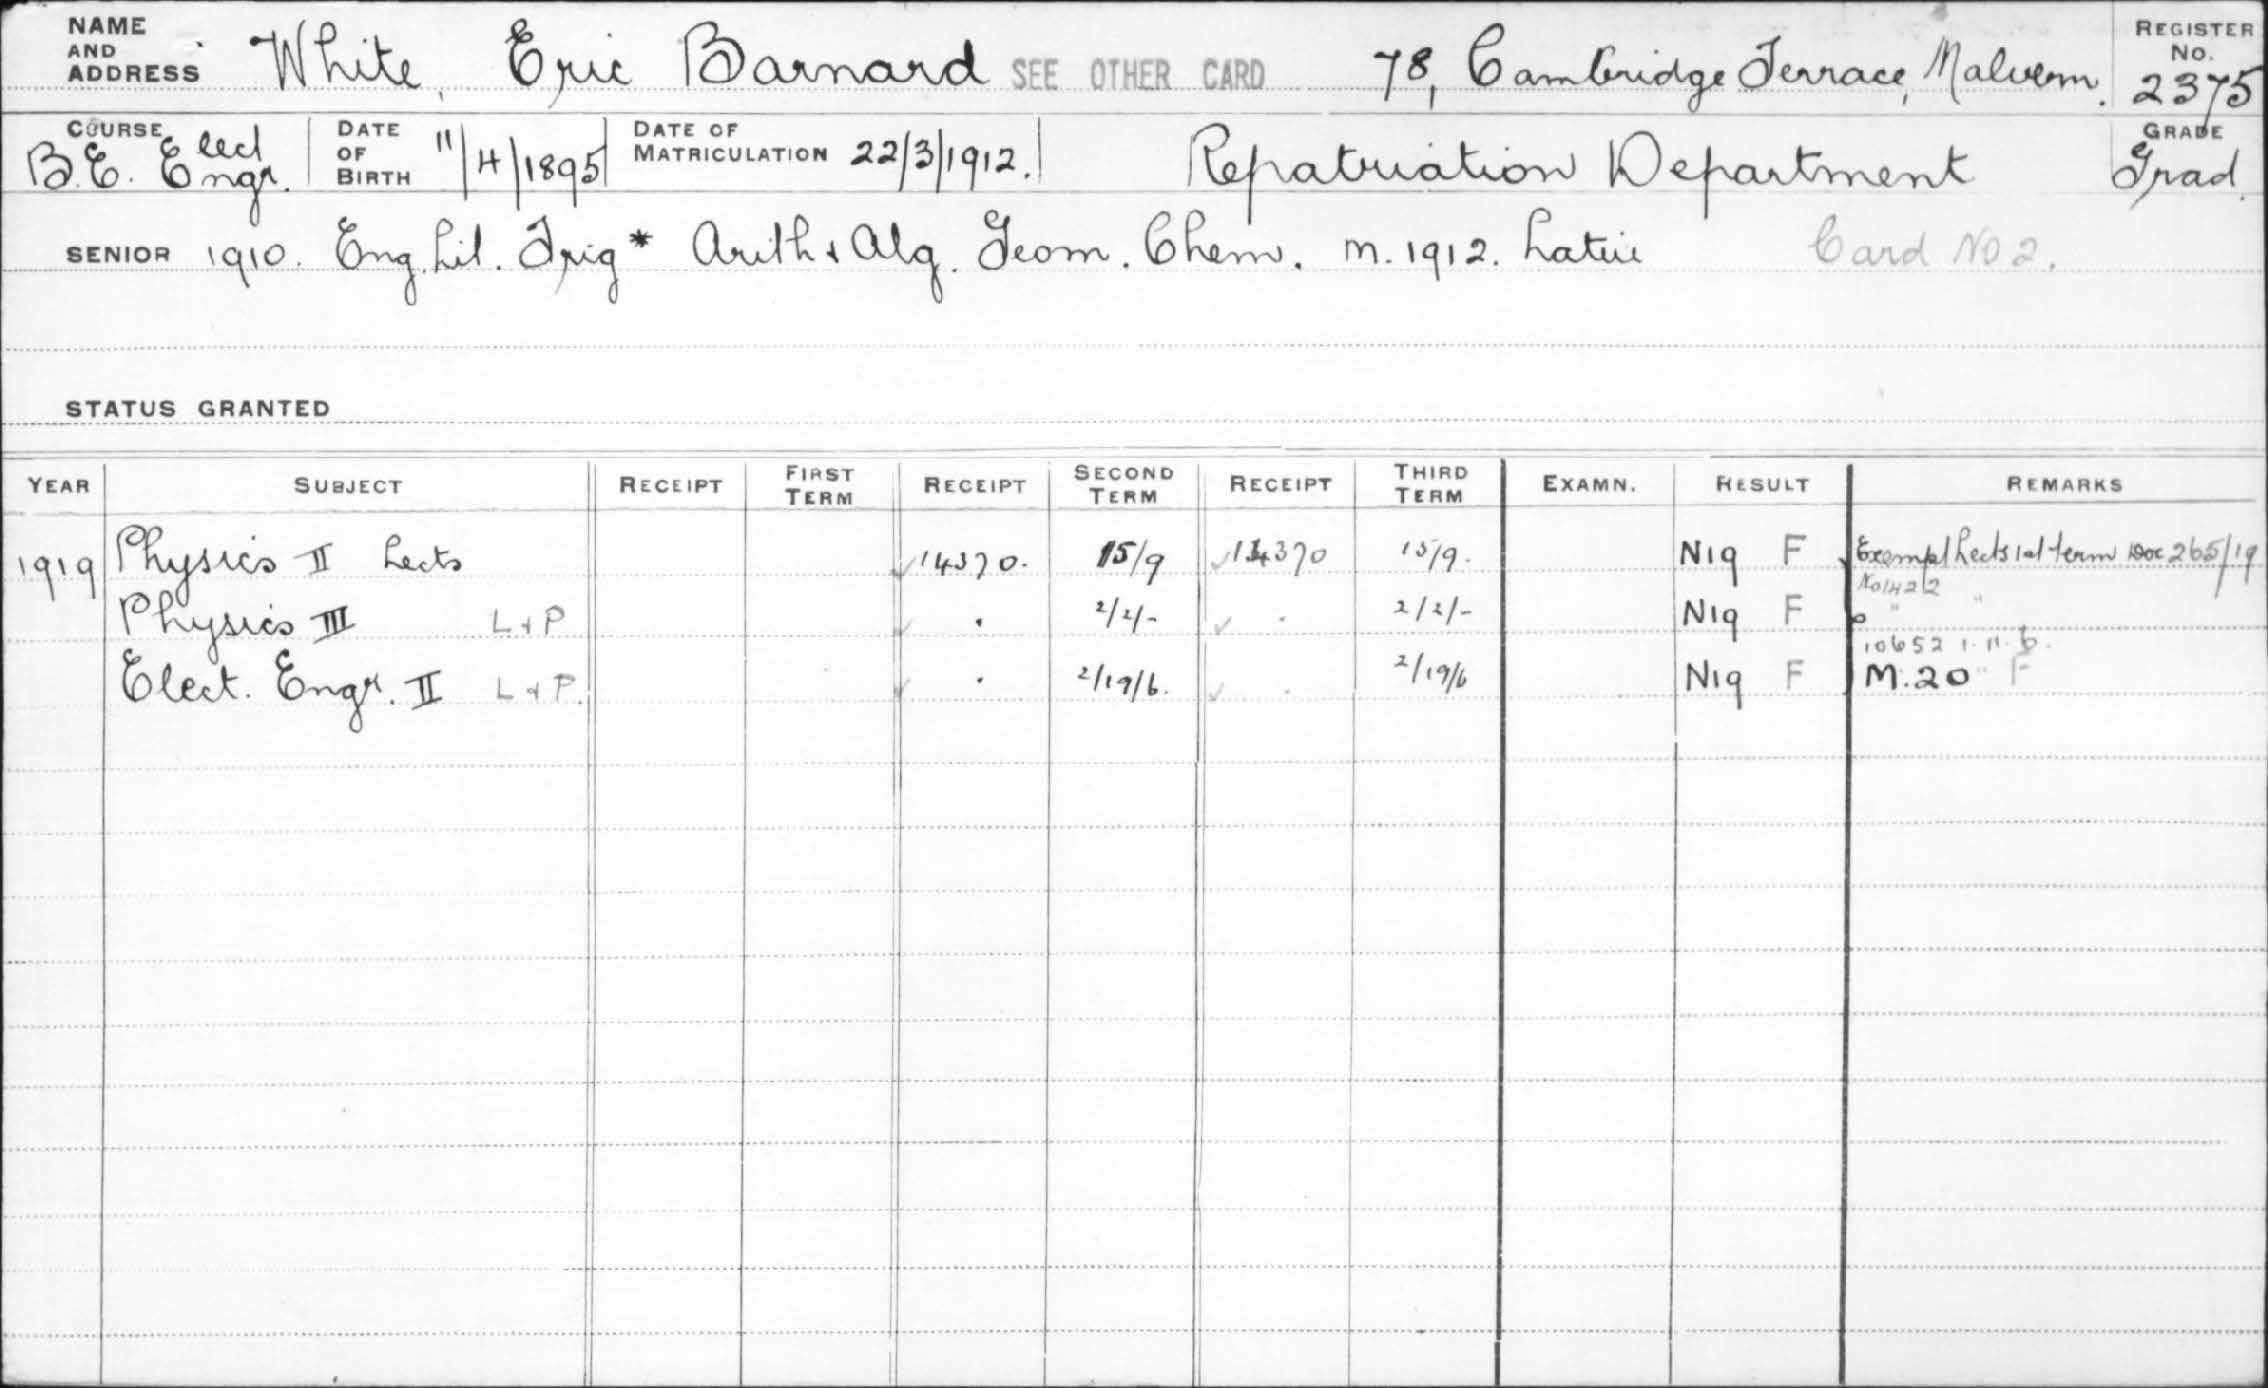 NAME AND ADDRESS White, Eric Barnard SEE OTHER CARD 78, Cambridge Terrace, Malvern. REGISTER No. 2375
COURSE B.E. Elect Engr. DATE OF BIRTH 11/4/1895 DATE OF MATRICULATION 22/3/1912. Repatriation Department GRADE Grad.
SENIOR 1910. Eng. Lit. Trig * Arith & Alg. Geom. Chem. M. 1912. Latin Card No 2.
STATUS GRANTED
YEAR SUBJECT RECEIPT FIRST TERM RECEIPT SECOND TERM RECEIPT THIRD TERM EXAMN. RESULT REMARKS
1919 Physics II Lects ✓ 14370. 15/9 ✓ 14370 15/9. N19 F Exempt Lects 1st term Doc 265/19
Physics III L & P ✓ . 2/2/- ✓ . 2/2/- N19 F " "
10652 1.11.6.
Elect. Engr. II L & P. ✓ . 2/19/6. ✓ . 2/19/6 N19 F M.20 F